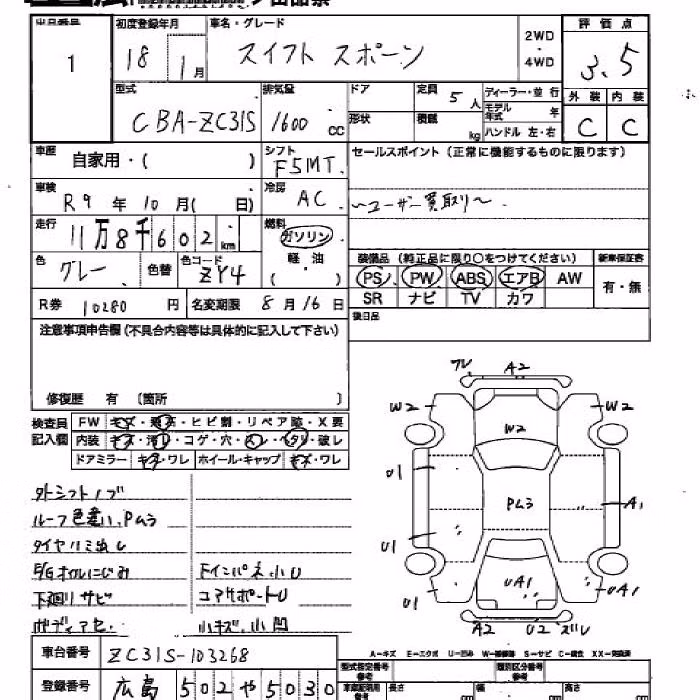 出品番号 初度登録年月 車名・グレード 2WD・4WD 評価点
1 18 1月 スイフト スポーツ 3.5
型式 排気量 ドア 定員 5人 ディーラー・並行 外装 内装
CBA-ZC31S 1600cc 形状 積載 kg モデル年式 年 ハンドル 左・右 C C
車歴 自家用・( ) シフト F5MT. セールスポイント(正常に機能するものに限ります)
車検 R9年10月( 日) 冷房 AC 〜ユーザー買取り〜
走行 11万8千602km 燃料 ガソリン 軽油 ( )
色 グレー 色替 色コード ZY4
装備品(純正品に限り○をつけてください) 新車保証書
PS PW ABS エアB AW 有・無
SR ナビ TV カワ
R券 10280円 名変期限 8月16日 後日品
注意事項申告欄(不具合内容等は具体的に記入して下さい)
修復歴 有 〔箇所 〕
検査員記入欄 FW キズ・飛石・ヒビ割・リペア跡・X要
内装 キズ・汚レ・コゲ・穴・スレ・ヘタリ・破レ
ドアミラー キズ・ワレ ホイール・キャップ キズ・ワレ
外シフトノブ
ルーフ色違い、PMう
タイヤハミ出し
E/Gオイルにじみ ドインパネ小U
下廻りサビ コアサポートU
ボディアセ. 小キズ、小凹
フレ A2
W2 W2
W2
U1
PM3 A1
U1
U1 UA1 UA1
A2 U2 ズレ
A-キズ E-エクボ U-凹み W-補修跡 S-サビ C-腐食 XX-交換済
車台番号 ZC31S-103268
型式指定番号 参考 類別区分番号 参考
登録番号 広島 502 や 5030 長さ cm 幅 cm 高さ cm